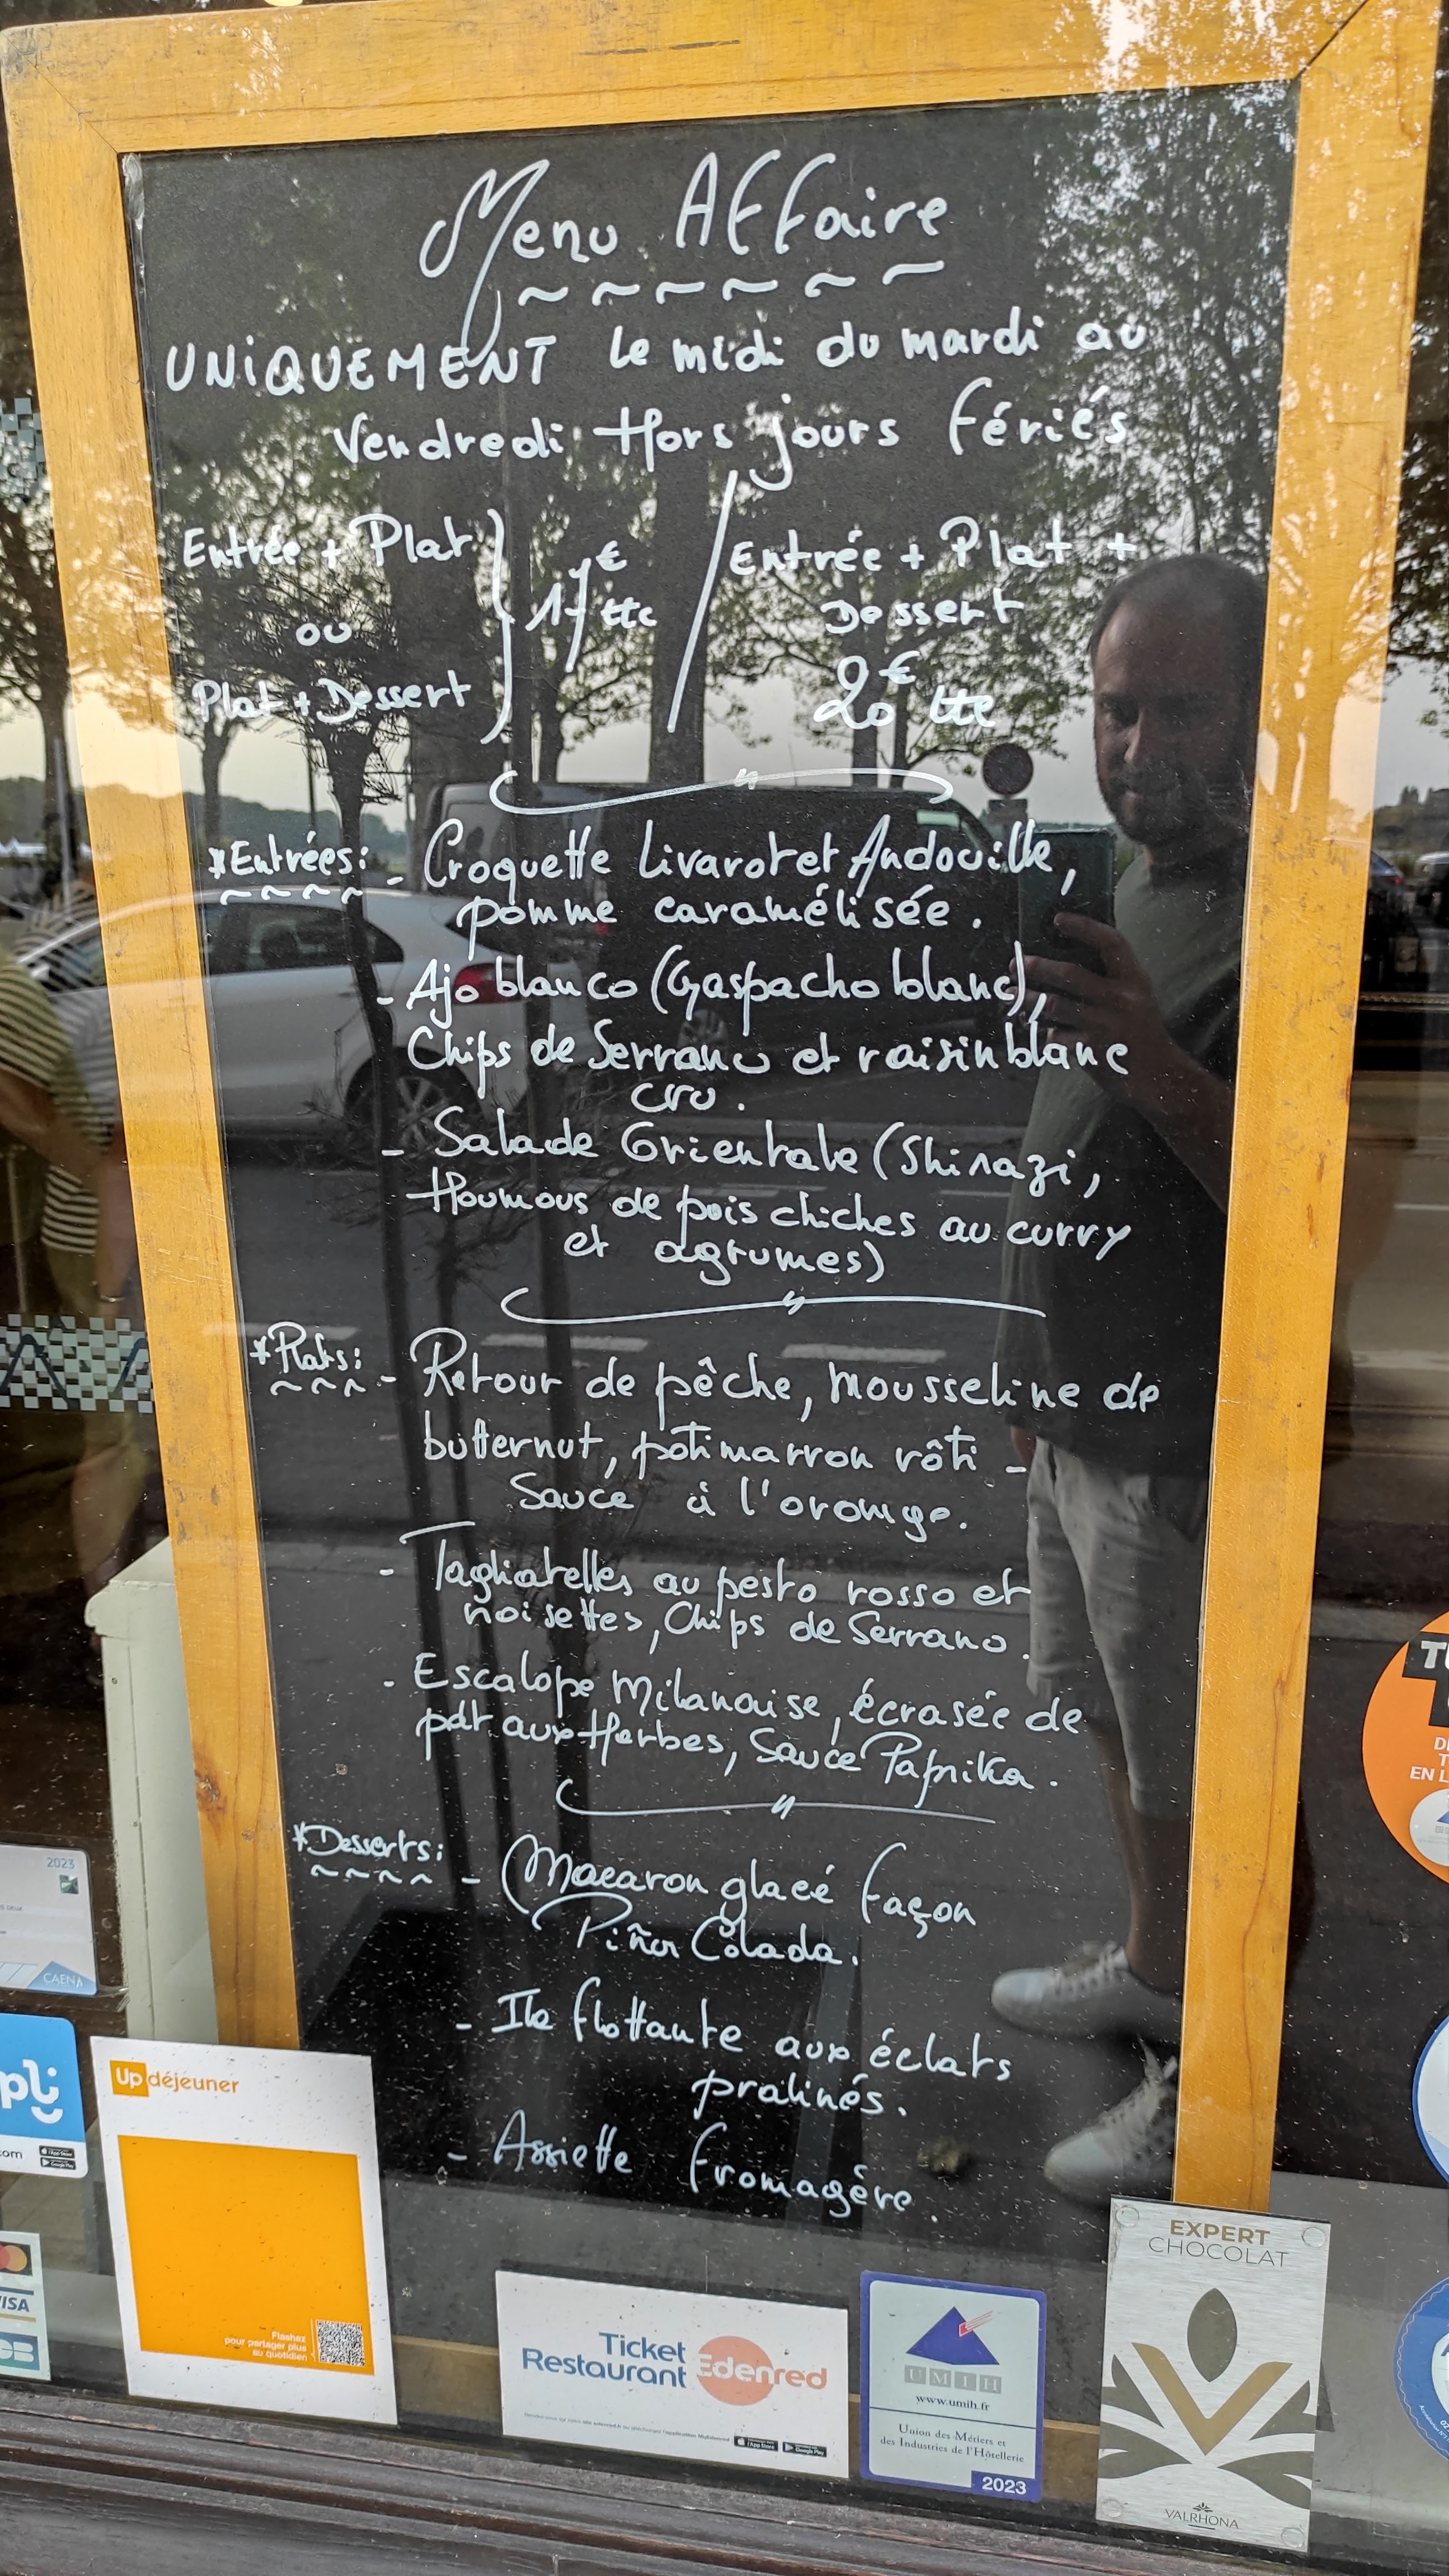 Menu Affaire
UNIQUEMENT le midi du mardi au
Vendredi Hors jours fériés
Entrée + Plat
ou
Plat + Dessert
17€ ttc
Entrée + Plat +
Dessert
20€ ttc
*Entrées: - Croquette Livarot et Andouille,
pomme caramélisée.
- Ajo blanco (Gaspacho blanc),
Chips de Serrano et raisin blanc
cru.
- Salade Orientale (Shirazi,
Houmous de pois chiches au curry
et agrumes)
*Plats: - Retour de pêche, mousseline de
butternut, potimarron rôti -
Sauce à l'orange.
- Tagliatelles au pesto rosso et
noisettes, Chips de Serrano.
- Escalope Milanaise, écrasée de
pdt aux Herbes, Sauce Paprika.
*Desserts: - Macaron glacé façon
Piña Colada.
- Ile flottante aux éclats
pralinés.
- Assiette fromagère.
2023
CAENA
Up déjeuner
Flashez
pour partager plus
au quotidien
VISA
CB
Ticket
Restaurant Edenred
App Store
Google Play
UMIH
www.umih.fr
Union des Métiers et
des Industries de l'Hôtellerie
2023
EXPERT
CHOCOLAT
VALRHONA
EN L